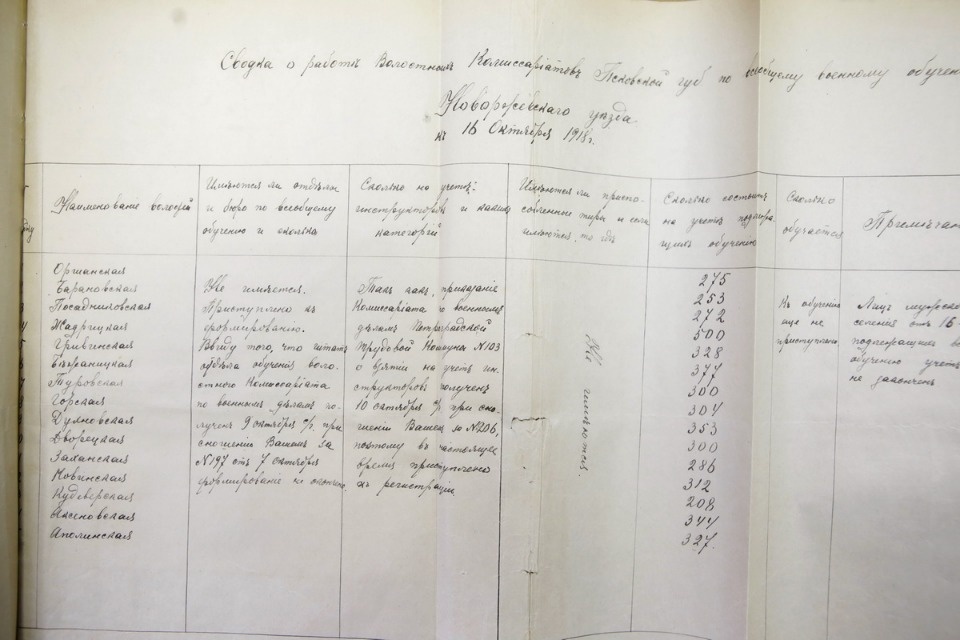 Сводка о работѣ Волостныхъ Комиссаріатовъ Псковской губ по всеобщему военному обучен
Новоржевскаго уѣзда
къ 16 Октября 1918г.
Наименованіе волостей
Имѣются ли отдѣлы
и бюро по всеобщему
обученію и сколько
Сколько на учетѣ
инструкторовъ и какихъ
категорій
Имѣются ли приспо-
собленные и если
имѣются, то гдѣ
Сколько состоитъ
на учетѣ подлежа-
щихъ обученію
Сколько
обучается
Примѣчан
Оршанская
Барановская
Посадниковская
Жадрицкая
Гривинская
Туровская
Горская
Дворецкая
Заханская
Новинская
Кудеверская
Аксеновская
Аполинская
Не имѣется.
Приступлено къ
формированію.
Ввиду того, что штатъ
отдѣла обученія воло-
стного Комиссаріата
по военнымъ дѣламъ по-
лученъ 9 октября с/г. при
сношеніи Вашемъ за
№197 отъ 7 октября
формированіе не окончено
Такъ какъ, приказаніе
Комиссаріата по военнымъ
дѣламъ Петроградской
Трудовой Коммуны №103
о взятіи на учетъ ин-
структоровъ полученъ
10 октября с/г. при сно-
шеніи Вашемъ за №206,
поэтому въ настоящее
время приступлено
къ регистраціи
Не имѣются.
275
253
272
500
328
377
300
304
353
300
286
312
208
344
327.
Къ обученію
еще не
приступлено
Лицъ мужско
селенія отъ 16-
подлежащихъ во
обученію учетъ
не законченъ